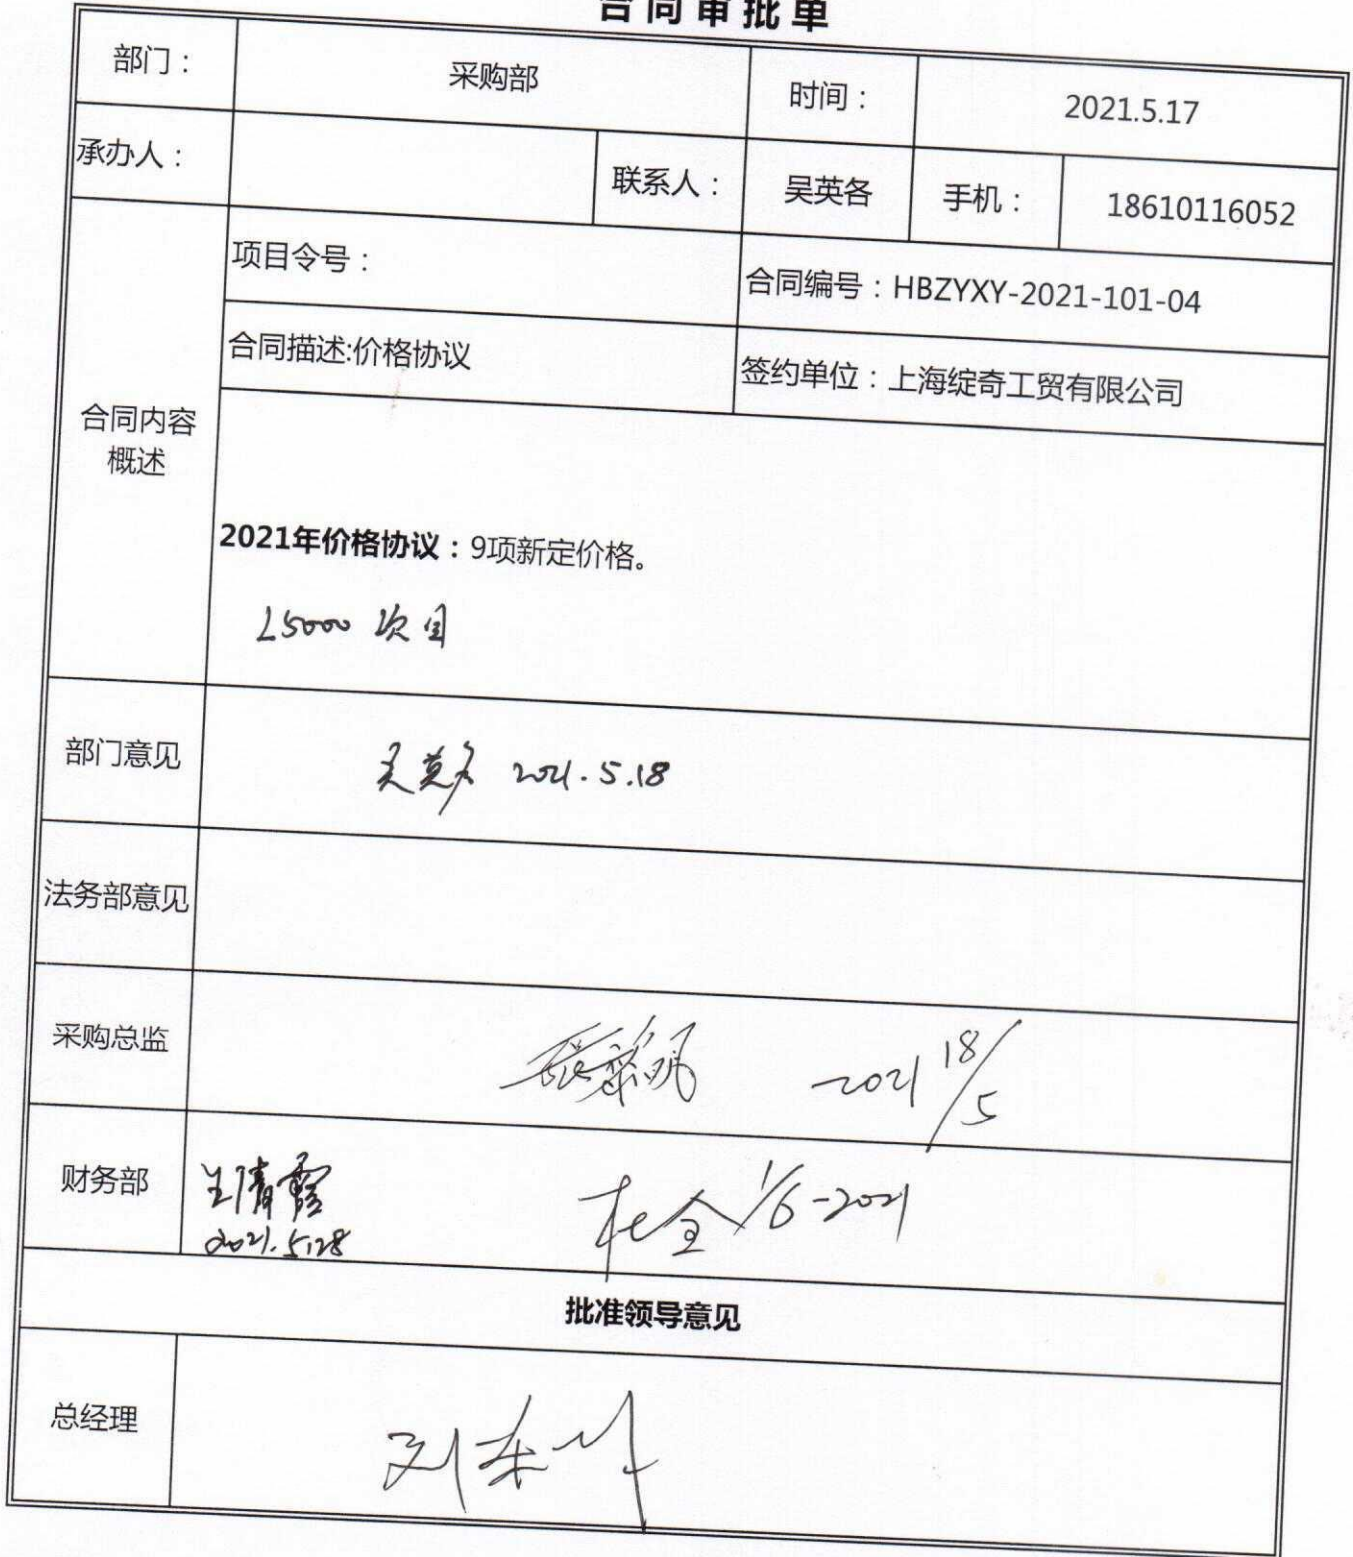 合同审批单
部门： 采购部 时间： 2021.5.17
承办人： 联系人： 吴英各 手机： 18610116052
项目令号： 合同编号：HBZYXY-2021-101-04
合同描述:价格协议 签约单位：上海绽奇工贸有限公司
合同内容
概述
2021年价格协议：9项新定价格。
25000
部门意见 吴英各 2021.5.18
法务部意见
采购总监 2021 18/5
财务部 1/6-2021
2021.5.28
批准领导意见
总经理